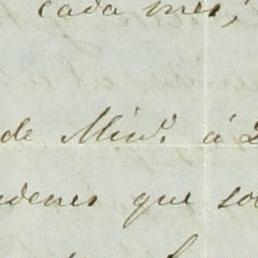 cada mes,
de Minº. á 2
rdenes que so